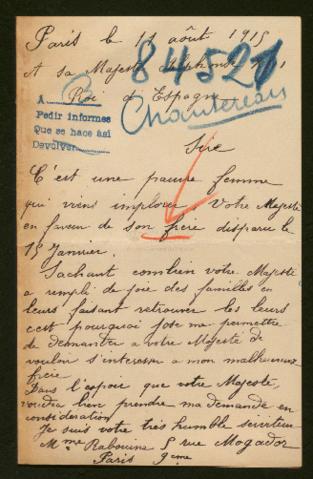 Paris le 11 août 1915
A sa Majesté Alphonse
84521
Roi d'Espagne
A 3
Pedir informes
Que se hace así
Devolver
Chantereau
Sire
C'est une pauvre femme
qui viens implorer Votre Majesté
en faveur de son frère disparu le
15 Janvier.
Sachant combien votre Majesté
a rempli de joie des familles en
leurs faisant retrouver les leurs
c'est pourquoi j'ose me permettre
de demander a votre Majesté de
vouloir s'interesser a mon malheureux
frère
Dans l'espoir que votre Majesté,
voudra bien prendre ma demande en
considération
Je suis votre très humble serviteur
Mme Rabouine 5 rue Mogador
Paris 9eme